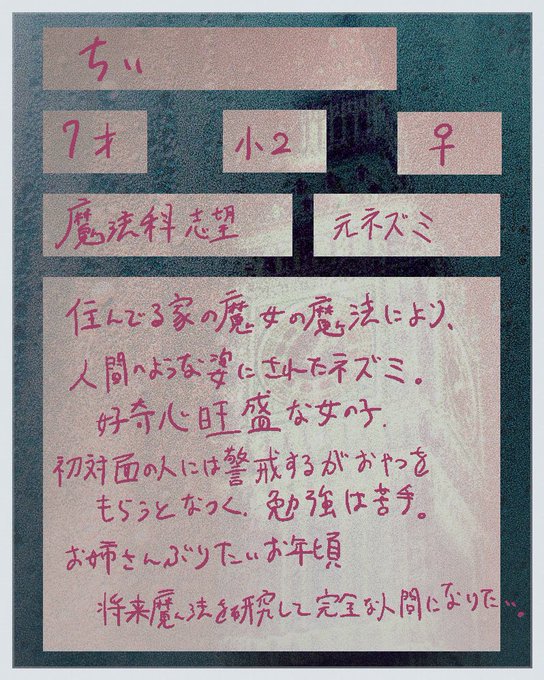 ちぃ
7才
小2
♀
魔法科志望
元ネズミ
住んでる家の魔女の魔法により、
人間のような姿にされたネズミ。
好奇心旺盛な女の子.
初対面の人には警戒するがおやつを
もらうとなつく. 勉強は苦手。
お姉さんぶりたいお年頃
将来魔法を研究して完全な人間になりたい…。